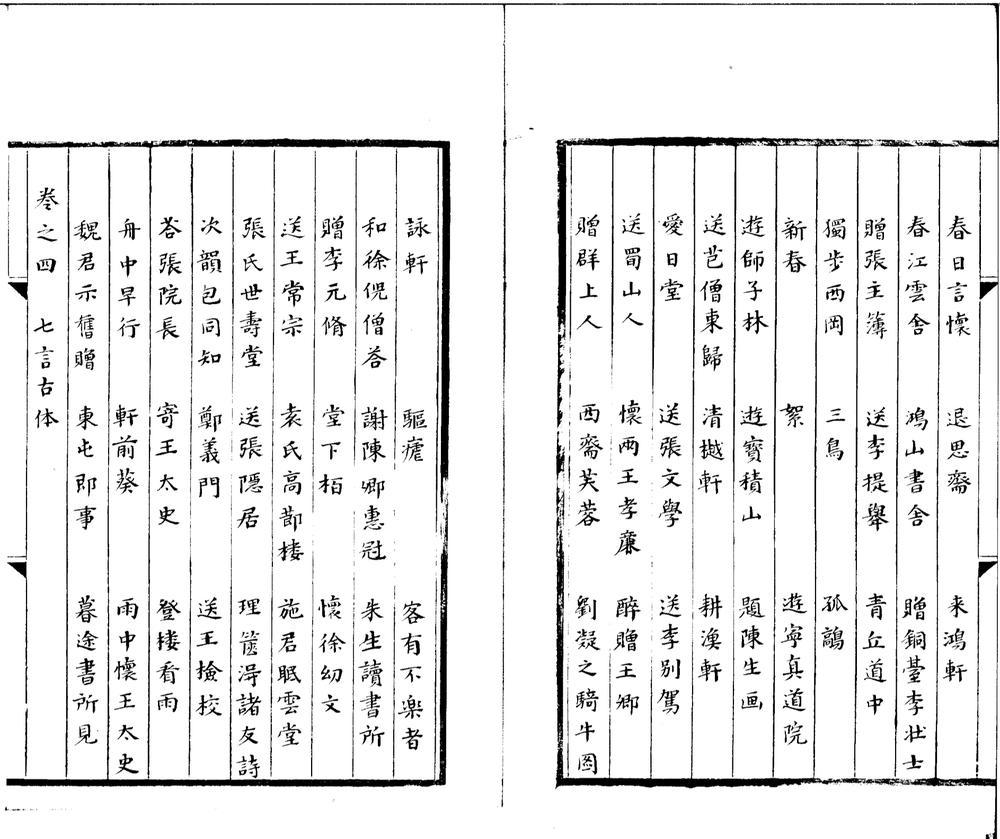 春日言懷　退思齋　来鴻軒
春江雲舍　鴻山書舍　贈銅䑓李壮士
贈張主簿　送李提舉　青丘道中
獨步西岡　三鳥　孤鷮
新春　絮　遊寧真道院
遊師子林　遊寶積山　題陳生画
送芑僧東歸　清樾軒　耕漁軒
愛日堂　送張文學　送李别駕
送蜀山人　懷兩王孝廉　醉贈王卿
贈群上人　西齋芙蓉　劉凝之騎牛圖
詠軒　驅瘧　客有不樂者
和徐倪僧荅　謝陳卿惠冠　朱生讀書所
贈李元脩　堂下栢　懷徐幼文
送王常宗　袁氏高莭楼　施君眠雲堂
張氏世壽堂　送張隱居　理篋淂諸友詩
次韻包同知　鄭義門　送王檢校
荅張院長　寄王太史　登楼看雨
舟中早行　軒前葵　雨中懷王太史
魏君示舊贈　東屯即事　暮途書所見
卷之四　七言古体